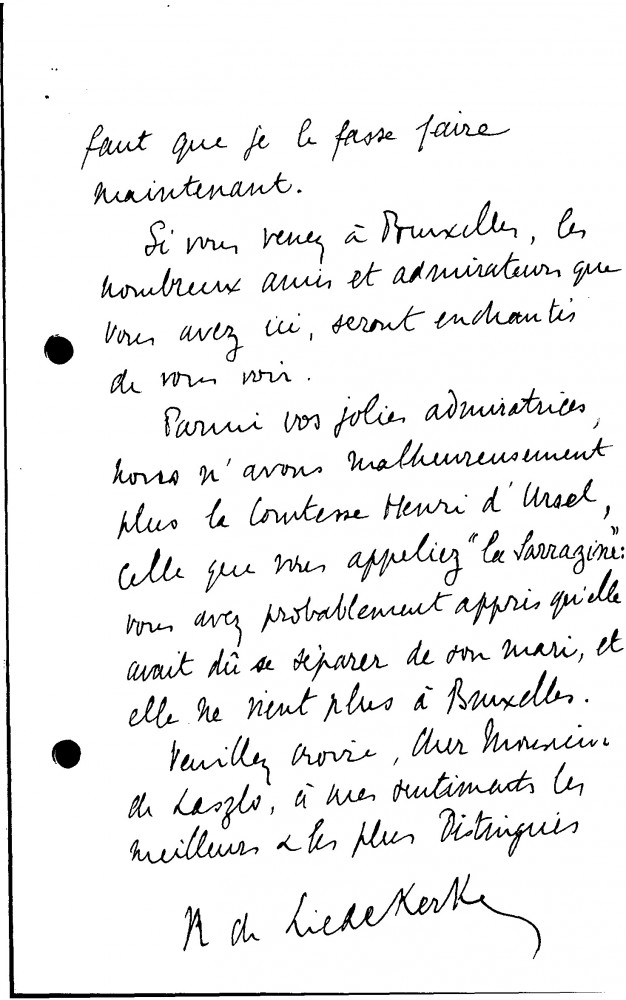 faut que je le fasse faire
maintenant.
Si vous venez à Bruxelles, les
nombreux amis et admirateurs que
vous avez ici, seront enchantés
de vous voir.
Parmi vos jolies admiratrices,
nous n'avons malheureusement
plus la Comtesse Henri d'Ursel,
celle que vous appeliez "la Sarrazine":
vous avez probablement appris qu'elle
avait dû se séparer de son mari, et
elle ne vient plus à Bruxelles.
Veuillez croire, Cher Monsieur
de Laszlo, à mes sentiments les
meilleurs & les plus Distingués
R de Liedekerke